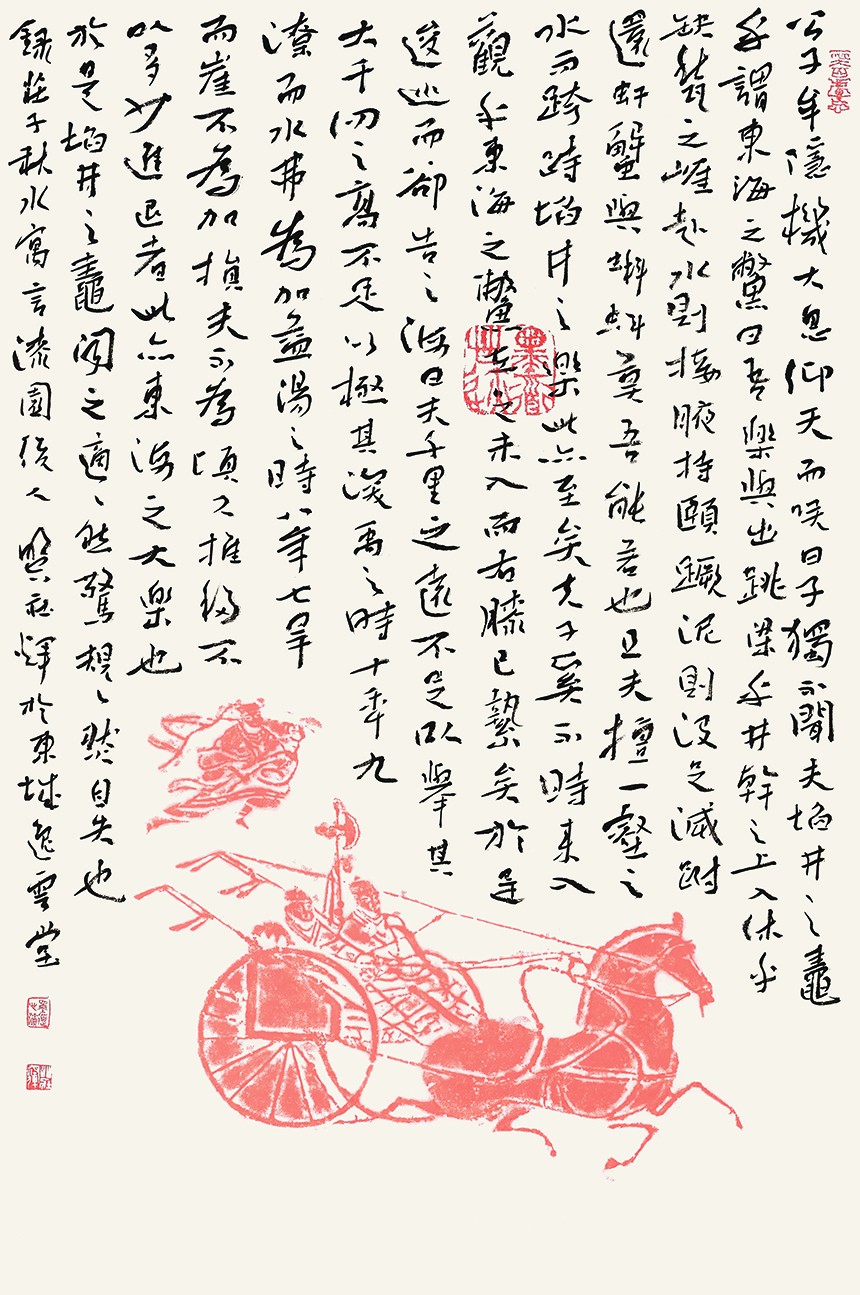 公子牟隱機大息仰天而咲曰子獨不聞夫埳井之鼃
乎謂東海之鱉曰吾樂與出跳梁乎井幹之上入休乎
缺甃之崖赴水則接腋持頤蹶泥則没足滅跗
還虷蟹與蝌蚪莫吾能若也且夫擅一壑之
水而跨跱埳井之樂此亦至矣夫子奚不時来入
觀乎東海之鱉左足未入而右膝已縶矣於是
逡巡而卻告之海曰夫千里之遠不足以舉其
大千仞之高不足以極其深禹之時十年九
潦而水弗為加益湯之時八年七旱
而崖不為加損夫不為頃久推移不
以多少進退者此亦東海之大樂也
於是埳井之鼃聞之適適然驚規規然自失也
録莊子秋水寓言漆園後人 社輝於東城逸雲堂